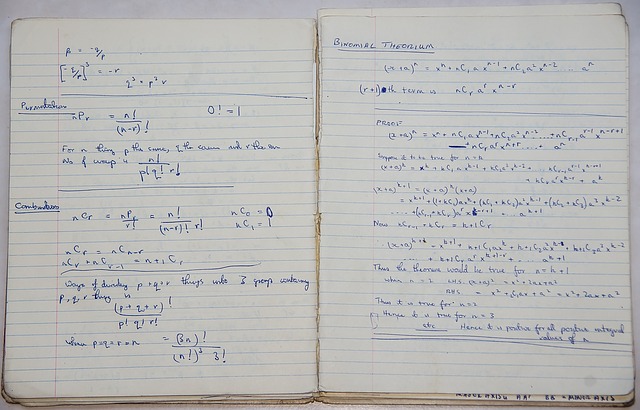 p = -q/p
[-q/p]³ = -r
q³ = p³ r
Permutations
nPr = n!/(n-r)!    0! = 1
For n things p the same, q the same and r the same
No of ways is n!/(p! q! r!)
Combinations
nCr = nPr/r! = n!/((n-r)! r!)    nC0 = 0
nC1 = 1
nCr = nCn-r
nCr + nCr-1 = n+1Cr
Ways of dividing p+q+r things into 3 groups containing
p, q, r things is
(p+q+r)!/(p! q! r!)
where p=q=r=n = (3n)!/((n!)³ 3!)
BINOMIAL THEORIUM
(x+a)ⁿ = xⁿ + nC1 a xⁿ⁻¹ + nC2 a² xⁿ⁻² ... aⁿ
(r+1)th term is nCr aʳ xⁿ⁻ʳ
PROOF
(x+a)ⁿ = xⁿ + nC1 a xⁿ⁻¹ + nC2 a² xⁿ⁻² ... + nCr-1 aʳ⁻¹ xⁿ⁻ʳ⁺¹
+ nCr aʳ xⁿ⁻ʳ + ... aⁿ
Suppose it to be true for n = k
(x+a)ᵏ = xᵏ + kC1 a xᵏ⁻¹ + kC2 a² xᵏ⁻² ... kCr-1 aʳ⁻¹ xᵏ⁻ʳ⁺¹
+ kCr aʳ xᵏ⁻ʳ + aᵏ
(x+a)ᵏ⁺¹ = (x+a)ᵏ (x+a)
Now kCr-1 + kCr = k+1Cr
Thus the theorem would be true for n = k+1
when n = 2  LHS. (x+a)² = x² + 2ax + a²
RHS = x² + 2C1ax + a² = x² + 2ax + a²
Thus it is true for n = 2
Hence it is true for n = 3
etc    Hence it is positive for all positive integral
values of n